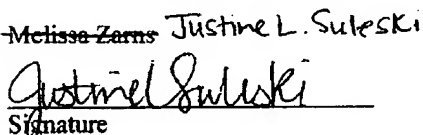 Melissa Zarns Justine L. Suleski
Justine L Suleski
Signature